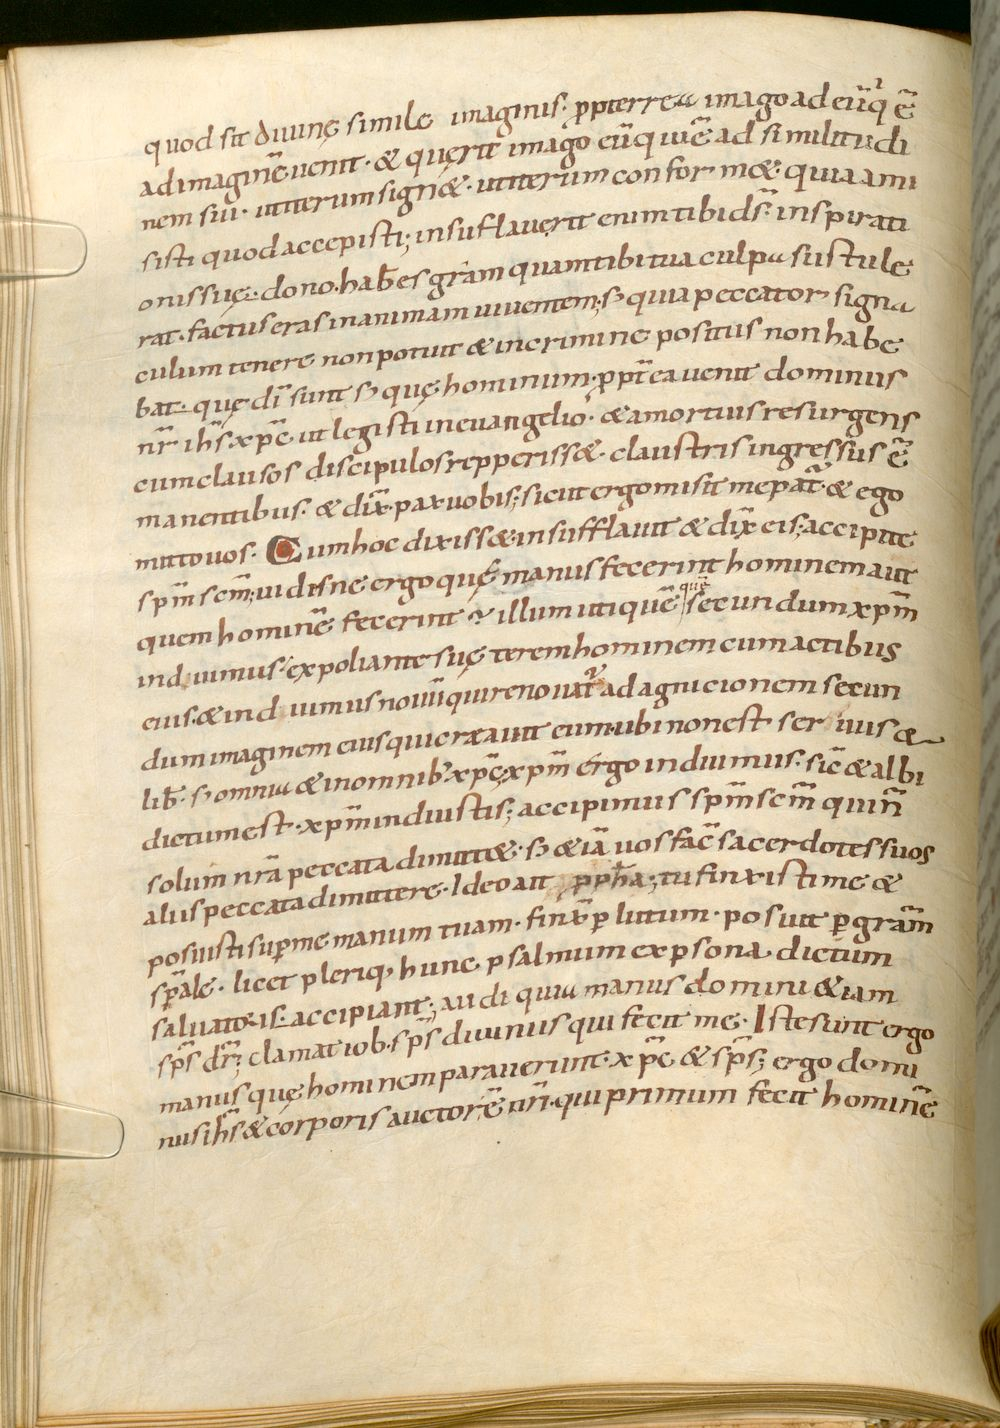 quod sit diuinę simile imaginis· ꝓpterrea imago ad eū q̇ ē
ad imaginē uenit· & quęrit imago eū qui ē ad similitudi
nem sui· ut iterum sign&· ut iterum conform&· quia ami
sisti quod accepisti; insuflauerit enim tibi d̄s· inspirati
onis suę· dono· hab̄es grām quam tibi tua culpa sustule
rat· factus eras in animam uiuentem; s; quia peccator signa
culum tenere non potuit & in crimine positus non habe
bat· quę dī sunt s; quę hominum· ꝓpt̄ ea uenit dominus
nr̄ ih̄s xp̄c ut legisti in euangelio· & a mortuis resurgens
cum clausos discipulos repperiss&· claustris ingressus ē
manentibus· & dix̄· pax uobis; sicut ergo misit me pat̄· & ego
mitto uos· Cum hoc dixiss& insufflauit & dix̄ eis; accipite
sp̄m scm̄; uidisne ergo quę manus fecerint hominem aut
quem hominē fecerint; illum utique quē secundum xp̄m
induimus· expoliantes uęterem hominem cum actibus
eius· & induimus nouū qui renouat̄ ad agnicionem secun
dum imaginem eius qui creauit eum· ubi non est seruus &
lib̄· s; omnia & in omnib; xp̄c; xp̄m ergo induimus· sic̄ & alibi
dictum est· xp̄m induistis; accipimus sp̄m scm̄ qui n̄
solum nrā peccata dimitt&· s; & iā uos fac̄ sacerdotes suos
aliis peccata dimittere· Ideo ait ꝓph̄a; tu finxisti me &
posuisti sup̄ me manum tuam· finx̄ ꝑ lutum· posuit ꝑ grām
sp̄ale· licet pleriq; hunc psalmum ex psona dictum
saluatoris· accipiant; audi quia manus domini &iam
sp̄s dr̄; clamat iob· sp̄s diuinus qui fecit me· Iste sunt ergo
manus quę hominem parauerunt· xp̄c & sp̄s; ergo domi
nus ih̄s & corporis auctorē nr̄i· qui primum fecit hominē